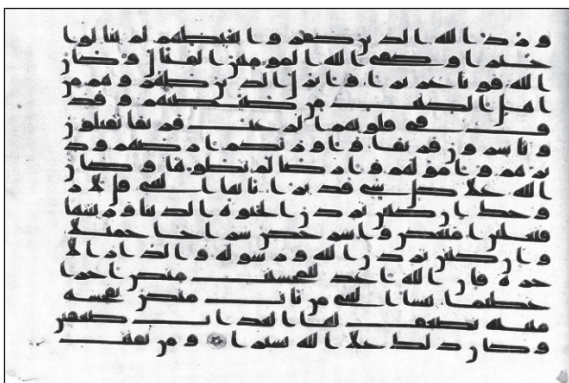 ورد الله الذين كفروا بغيظهم لم ينالوا
خيرا وكفى الله المومنين القتال وكان
الله قويا عزيزا وانزل الذين ظهروهم من
اهل الكتب من صياصيهم وقذ
ف في قلوبهم الرعب فريقا تقتلون
وتاسرون فريقا واورثكم ارضهم ود
يرهم وامولهم وارضا لم تطوها وكان
الله على كل شي قديرا يايها النبي قل لاز
وجك ان كنتن تردن الحيوة الدنيا وزينتها
فتعالين امتعكن واسرحكن سراحا جميلا
وان كنتن تردن الله ورسوله والدار الا
خرة فان الله اعد للمحسنت منكن اجرا
عظيما ينسا النبي من يات منكن بفحشة
مبينة يضعف لها العذاب ضعفين
وكان ذلك على الله يسيرا ومن يقنت